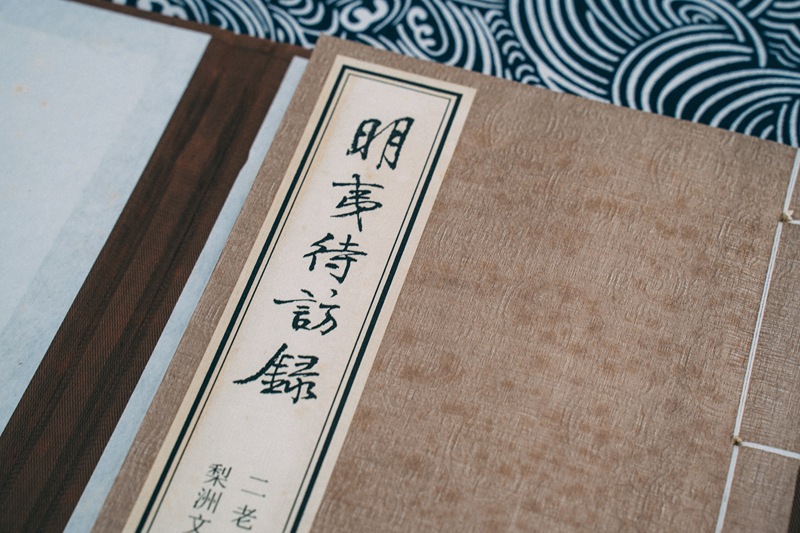 明夷待訪録
二老
梨洲文